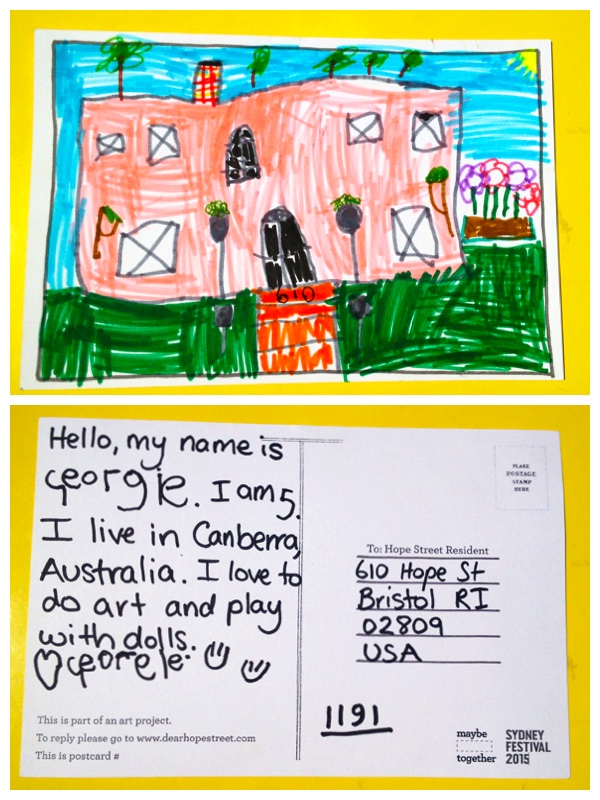 610
Hello, my name is
Georgie. I am 5.
I live in Canberra,
Australia. I love to
do art and play
with dolls.
Georgie
This is part of an art project.
To reply please go to www.dearhopestreet.com
This is postcard #
PLACE
POSTAGE
STAMP
HERE
To: Hope Street Resident
610 Hope St
Bristol RI
02809
USA
1191
maybe
together
SYDNEY
FESTIVAL
2015